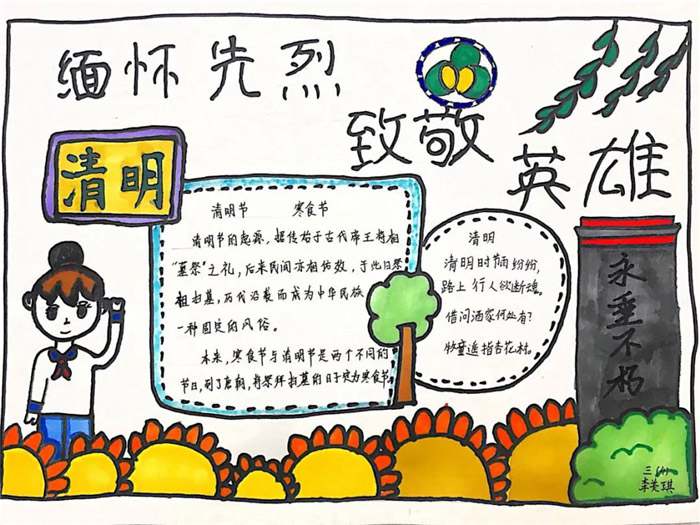 缅怀先烈
致敬
英雄
清明
清明节 寒食节
清明节的起源，据传始于古代帝王将相
“墓祭”之礼，后来民间亦相仿效，于此日祭
祖扫墓，历代沿袭而成为中华民族
一种固定的风俗。
本来，寒食节与清明节是两个不同的
节日，到了唐朝，将祭拜扫墓的日子定为寒食节
清明
清明时节雨纷纷，
路上行人欲断魂。
借问酒家何处有？
牧童遥指杏花村。
永垂不朽
李美琪